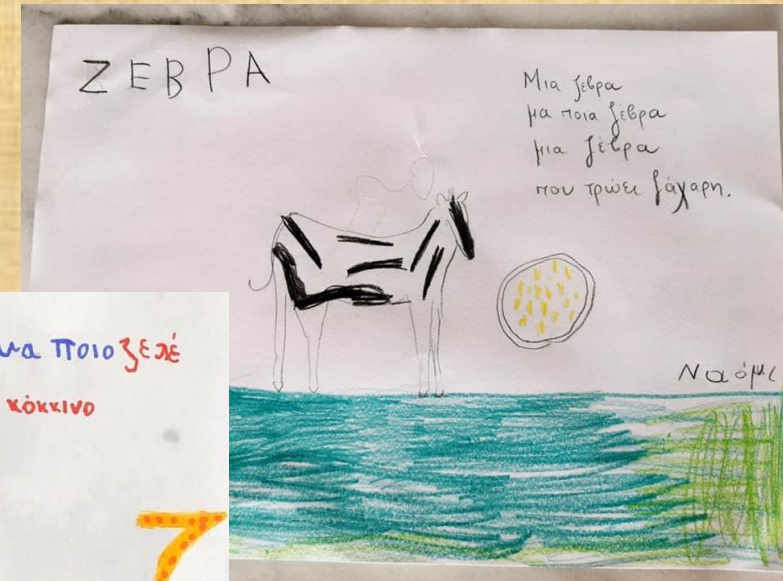 ΖΕΒΡΑ
Μια ζέβρα
μα ποια ζέβρα
μια ζέβρα
που τρώει ζάχαρη.
Ναόμι
μα ποιο ζελέ
κόκκινο
Ζ